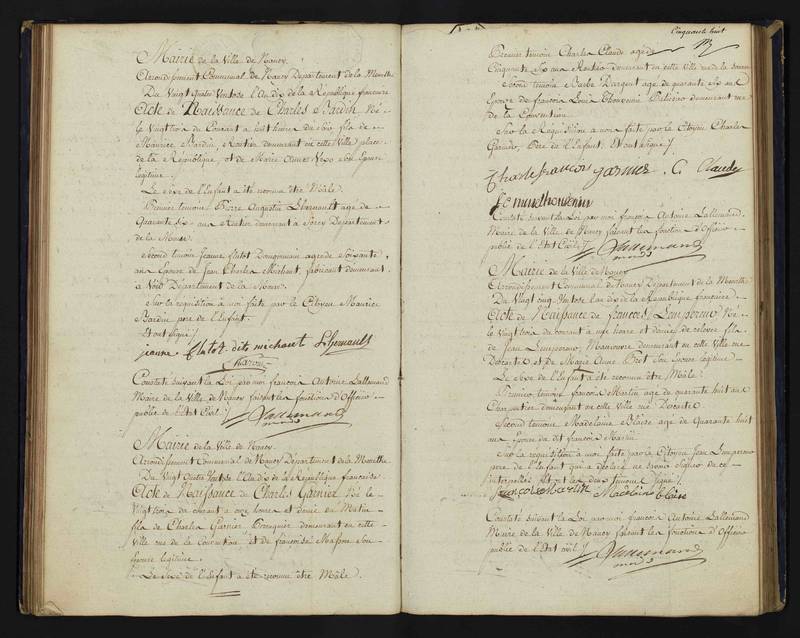 Mairie de la Ville de Nancy.
Arrondissement Communal de Nancy Département de la Meurthe
Du Vingt Quatre Ventose l'An dix de la République française
Acte de Naissance de Charles Bardin Né
le Vingt trois du Courant à huit heures du Soir fils de
Maurice Bardin, Rentier demeurant en cette Ville place
de la République, et de Marie Anne Son Epouse
legitime.
Le Sexe de l'Enfant a été reconnu être Mâle.
Premier temoin Pierre Augustin Lhernault age de
Quarante Six ans Rentier demeurant à Sorcy Departement
de la Meuse.
Second temoin Jeanne flutot agée de Soixante
ans Epouse de Jean Charles Michaut, fabricant demeurant
à Void Département de la Meuse.
Sur la requisition à moi faite par le Citoyen Maurice
Bardin pere de l'Enfant.
Et ont Signé /.
jeanne flutot dite michaut Lhernault
Constaté suivant la Loi par moi françois Antoine Lallemand
Maire de la Ville de Nancy faisant les fonctions d'Officier
public de l'Etat Civil /.
Lallemand
Mairie de la Ville de Nancy.
Arrondissement Communal de Nancy Département de la Meurthe
Du Vingt Quatre Ventose l'An dix de la République francaise
Acte de Naissance de Charles Garnier Né le
Vingt trois du courant à une heure et demie du Matin
fils de Charles Garnier demeurant en cette
Ville rue de la Constitution et de françoise Masson Son
Epouse legitime.
Le Sexe de l'Enfant a été reconnu être Mâle.
Cinquante huit
Premier temoin Charles Claude agé de
Cinquante Six ans Rentier demeurant en cette Ville rue de la
Second temoin Barbe Dargent agé de quarante Six ans
Epouse de françois Louis Thouvenin demeurant rue
de la Convention.
Sur la Requisition à moi faite par le Citoyen Charles
Garnier, Pere de l'Enfant. Et ont Signé /.
Charle françois garnier . C Claude
Constaté suivant la Loi par moi françois Antoine Lallemand
Maire de la Ville de Nancy faisant les fonctions d'Officier
public de l'Etat Civil /.
Lallemand
Mairie de la Ville de Nancy
Arrondissement Communal de Nancy Département de la Meurthe
Du Vingt cinq Ventose l'an dix de la République française
Acte de Naissance de francois Lempereur Né
le Vingt trois du courant à une heure et demie de relevée fils
de Jean Lempereur, Manoeuvre demeurant en cette Ville rue
et de Marie Anne Son Epouse legitime.
Le Sexe de l'Enfant a été reconnu être Mâle.
Premier temoin françois Martin agé de quarante huit ans
Charpentier demeurant en cette Ville rue
Second temoin Madelaine Blaise agé de Quarante huit
ans Epouse du dit françois Martin.
Sur la requisition à moi faite par le Citoyen Jean Lempereur
pere de l'Enfant qui a déclaré ne savoir Signer de ce
interpellé Et ont les deux temoins Signé /.
françois Martin Madelaine blaise
Constaté suivant la Loi par moi françois Antoine Lallemand
Maire de la Ville de Nancy faisant les fonctions d'Officier
public de l'Etat civil /.
Lallemand